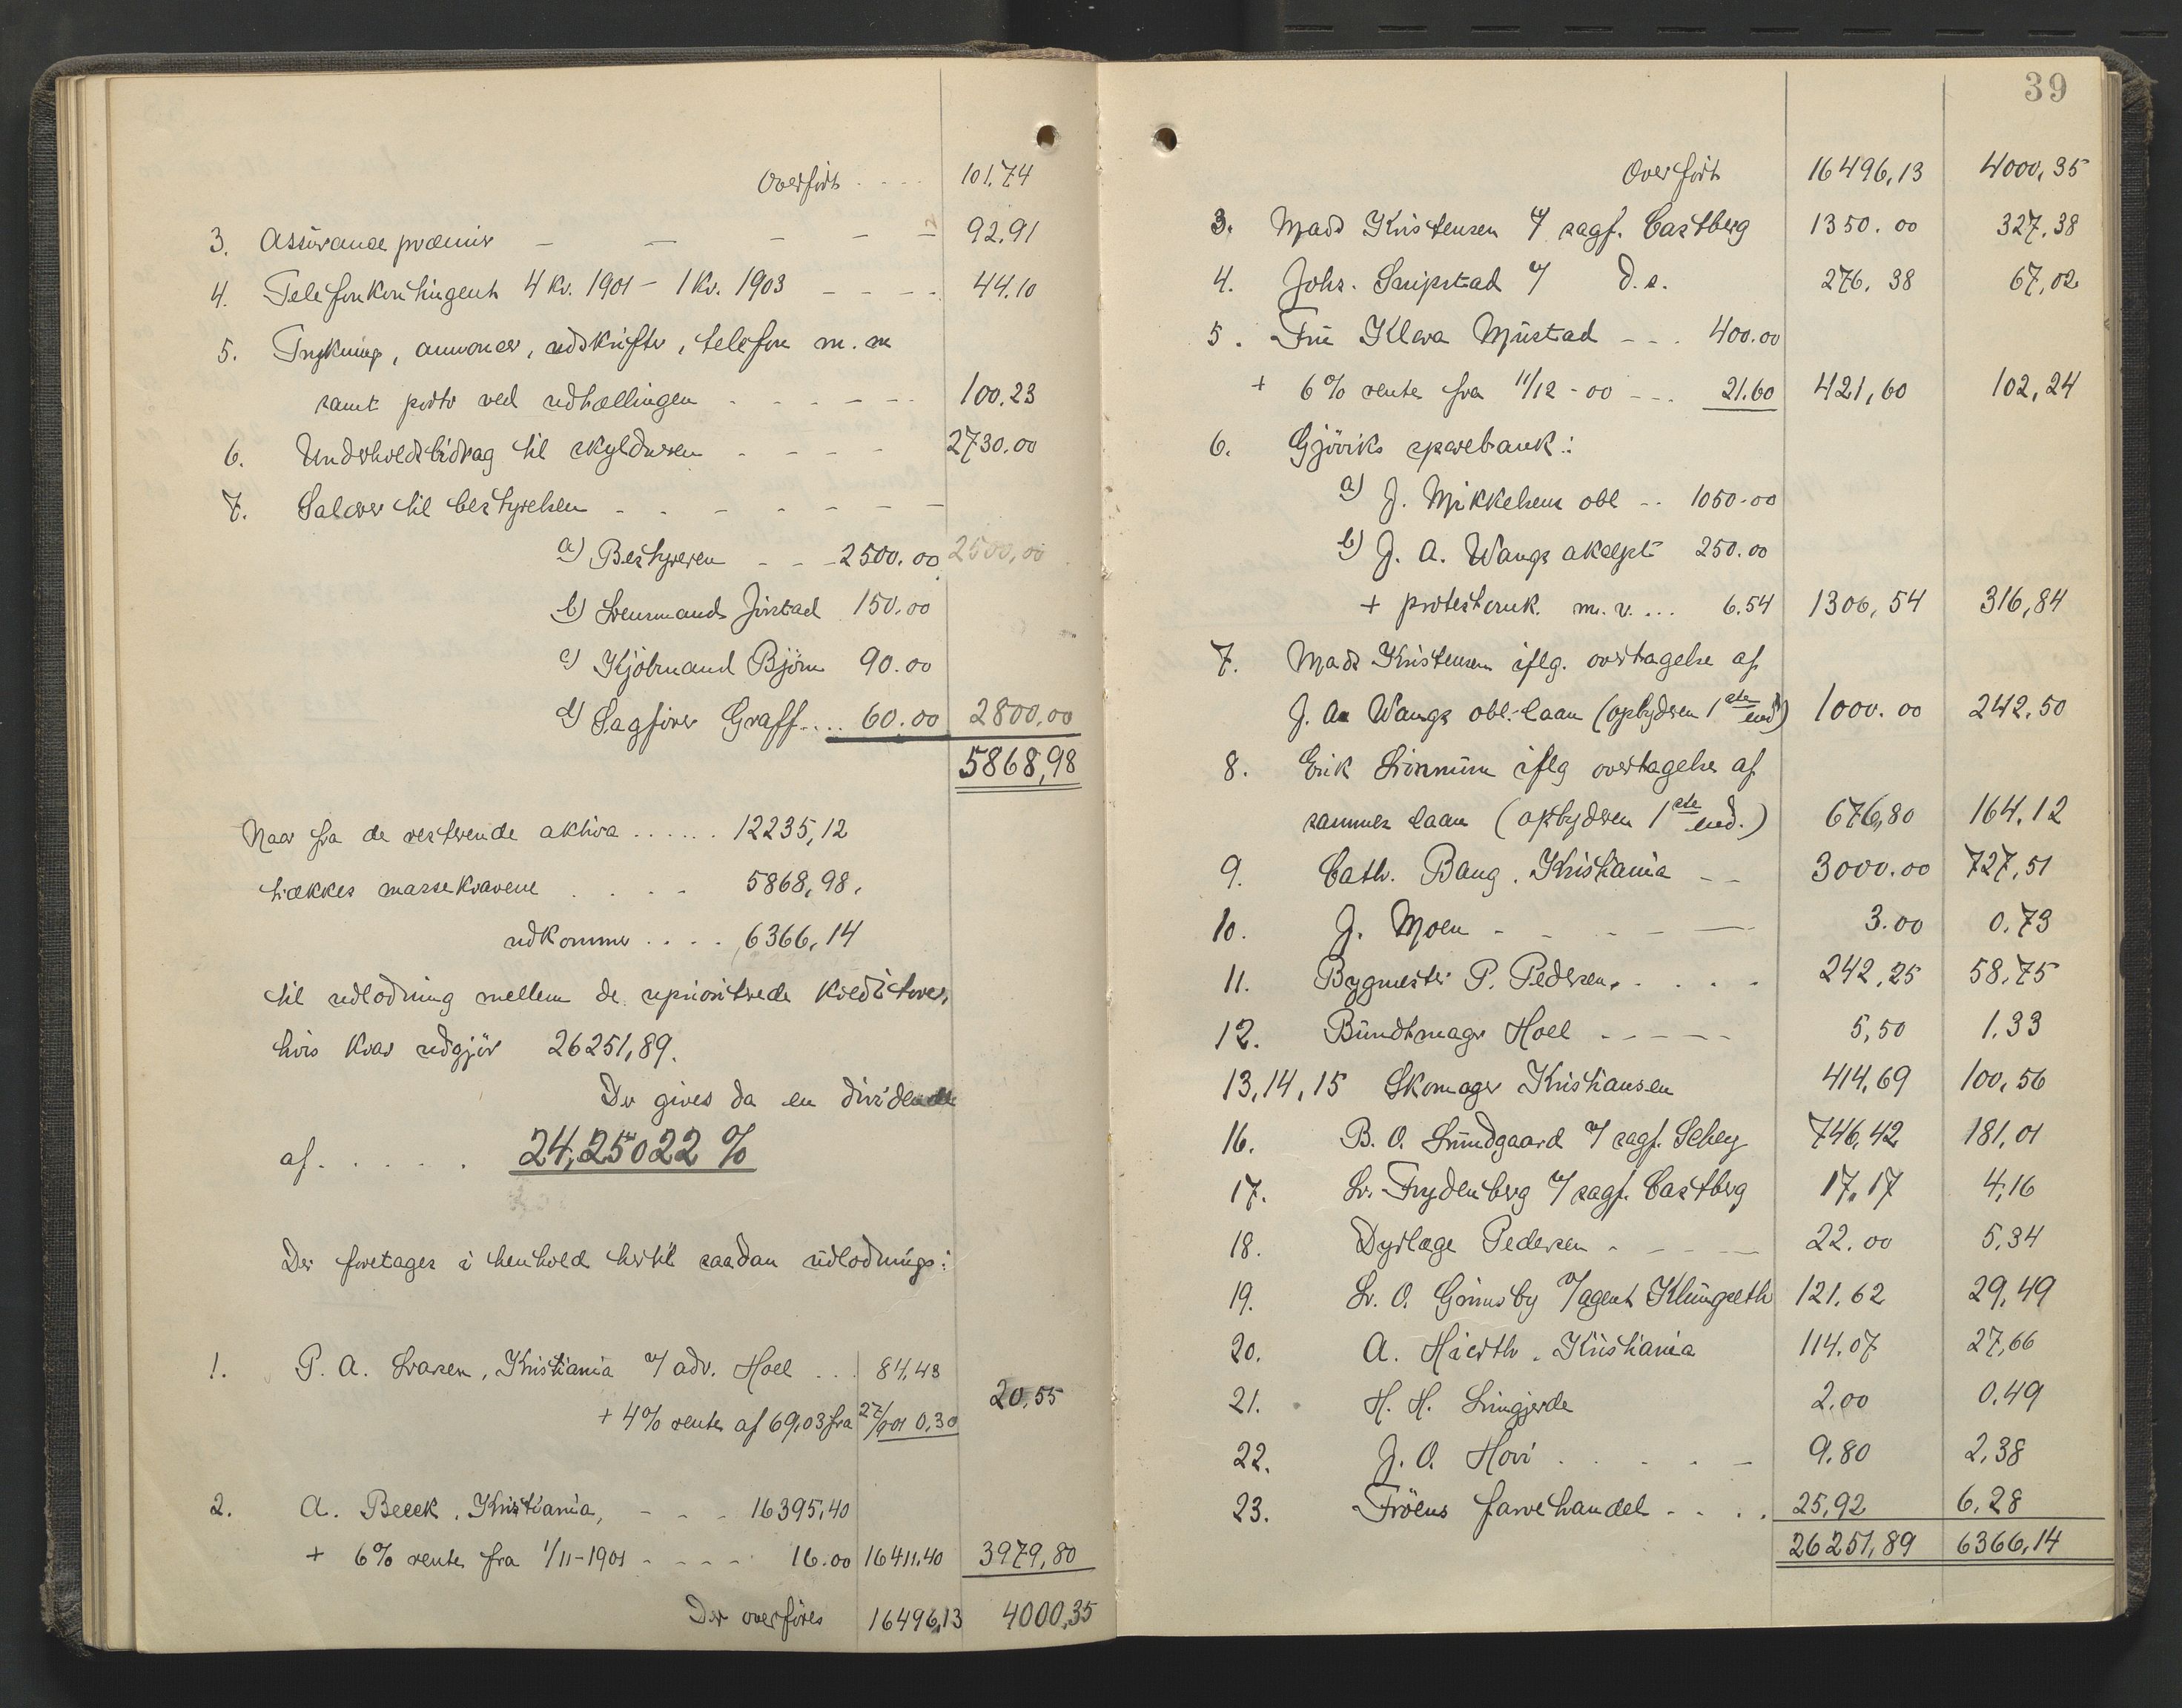 Overført .... 101.74
3. Assurance præmier - - - - - 92.91
4. Telefonkontingent 4 kv. 1901 - 1 kv. 1903 - - - - 44.10
5. Trykning, annoncer, udskrifter, telefon m. m
samt porto ved udtællingen - - - - - - 100.23
6. Underholdsbidrag til skyldneren - - - - 2730.00
7. Salær til bestyrelsen - - - - - - -
a) Bestyreren - - - 2500.00 2500,00
b) Lensmand Jirstad 150.00
c) Kjöbmand Björn 90.00
d) Sagförer Graff.... 60.00 2800.00
5868,98
Naar fra de resterende aktiva ...... 12235,12
trækkes massekravene . . . - 5868,98.
udkommer .... 6366,14
til udlodning mellem de upriorterede kreditorer,
hvis krav udgjör 26251,89.
Der gives da en dividende
af . . . . . 24,25022 %
Der foretages i henhold hertil saadan udlodning:
1. P. A. Larsen, Kristiania v/ adv. Hoel ... 84,43
+ 4% rente af 69,03 fra 27/9 01 0,30 20,55
2. A. Beeck, Kristiania, - - - 16395,40
+ 6% rente fra 1/11-1901 - - - - 16.00 16411.40 3979,80
Der overføres 16496,13 4000,35
39
Overført 16496,13 4000,35
3. Mads Kristensen v/ sagf. Castberg 1350.00 327,38
4. Johs. Snipstad v/ d.s. 276,38 67,02
5. Fru Klara Mustad - - . 400.00
+ 6% rente fra 11/12-00 - - . 21.60 421,60 102,24
6. Gjöviks sparebank:
a) J. Mikkelsens obl -- 1050.00
b) J. A. Wangs aksept 250.00
+ protestomk. m. v. ... 6.54 1306,54 316,84
7. Mads Kristensen iflg. overtagelse af
J. A. Wangs obl.-laan (opbyderen 1ste end) 1000.00 242.50
8. Erik Linnum iflg overtagelse af
sammes laan (opbyderen 1ste end.) 676,80 164.12
9. Cath. Bang, Kristiania - - 3000.00 727,51
10. J. Moen - - - - - 3.00 0.73
11. Bygmester P. Pedersen. . . . . 242,25 58.75
12. Bundtmager Hoel - - - - - 5,50 1.33
13, 14, 15 Skomager Kristiansen 414,69 100,56
16. B. O. Lundgaard v/ sagf. Schey 746,42 181,01
17. Lr. Frydenberg v/ sagf. Castberg 17,17 4,16
18. Dyrlæge Pedersen - - - - 22.00 5.34
19. Lr. O. Grimsby v/ agent Klingseth 121.62 29,49
20. A. Hierth, Kristiania 114.07 27,66
21. H. H. Limgjerde 2.00 0.49
22. J. O. Hovi . . . - - 9.80 2,38
23. Fröens farvehandel - - . . 25,92 6,28
26251,89 6366,14